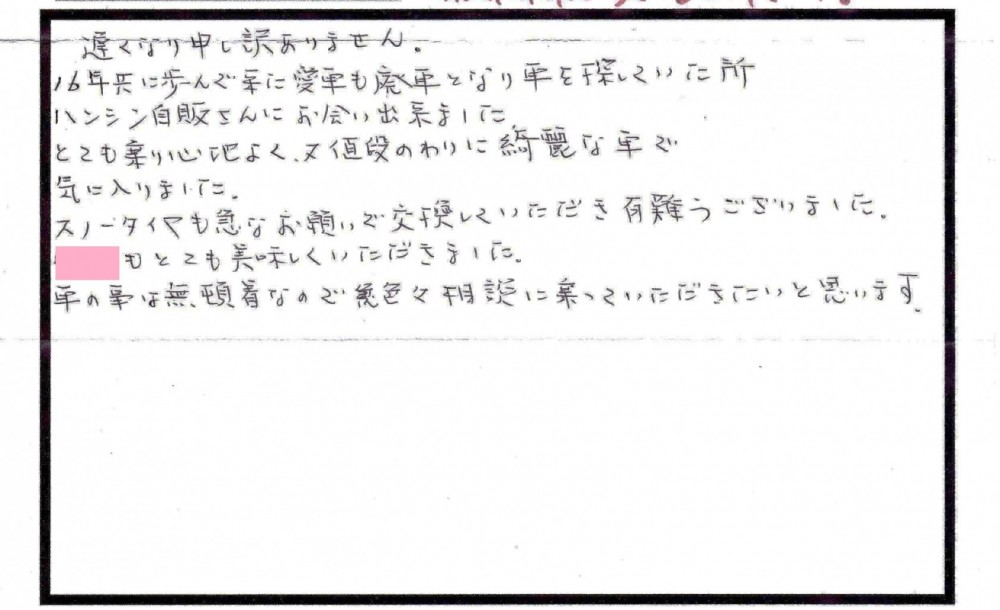 遅くなり申し訳ありません。
16年共に歩んで来た愛車も廃車となり車を探していた所
ハンシン自販さんにお会い出来ました。
とても乗り心地よく、又値段のわりに綺麗な車で
気に入りました。
スノータイヤも急なお願いで交換していただき有難うございました。
もとても美味しくいただきました。
車の事は無頓着なので色々相談に乗っていただきたいと思います。